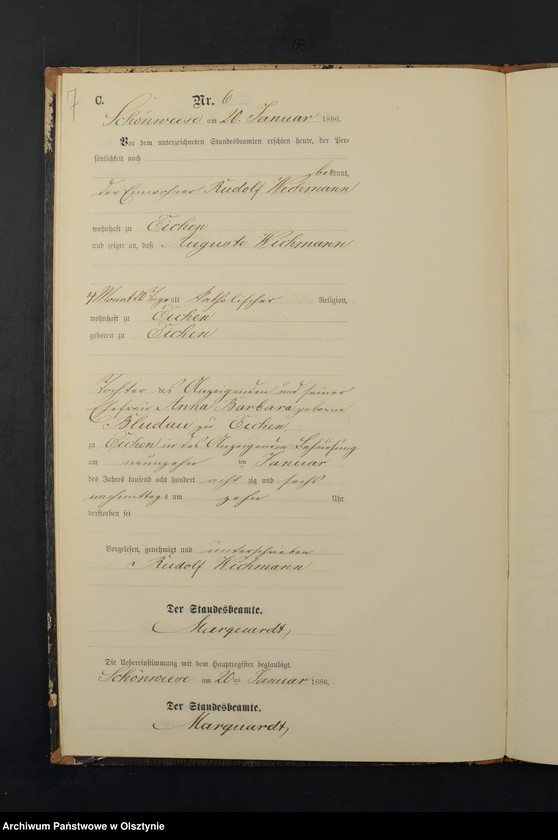 7
C.
Nr. 6
Schönwiese am 20. Januar 1886.
Vor dem unterzeichneten Standesbeamten erschien heute, der Per-
sönlichkeit nach
bekannt,
der Einwohner Rudolf Wichmann
wohnhaft zu Eichen
und zeigte an, daß Auguste Wichmann
4 Monat 20 Tage alt katholischer Religion,
wohnhaft zu Eichen
geboren zu Eichen
Tochter des Anzeigenden und seiner
Ehefrau Anna Barbara geborne
Bludau zu Eichen
zu Eichen in des Anzeigenden Behausung
am neunzehn ten Januar
des Jahres tausend acht hundert acht zig und sechs
nachmittags um zehn Uhr
verstorben sei
Vorgelesen, genehmigt und unterschrieben
Rudolf Wichmann
Der Standesbeamte.
Marquardt,
Die Uebereinstimmung mit dem Hauptregister beglaubigt.
Schönwiese am 20ten Januar 1886.
Der Standesbeamte.
Marquardt,
Archiwum Państwowe w Olsztynie